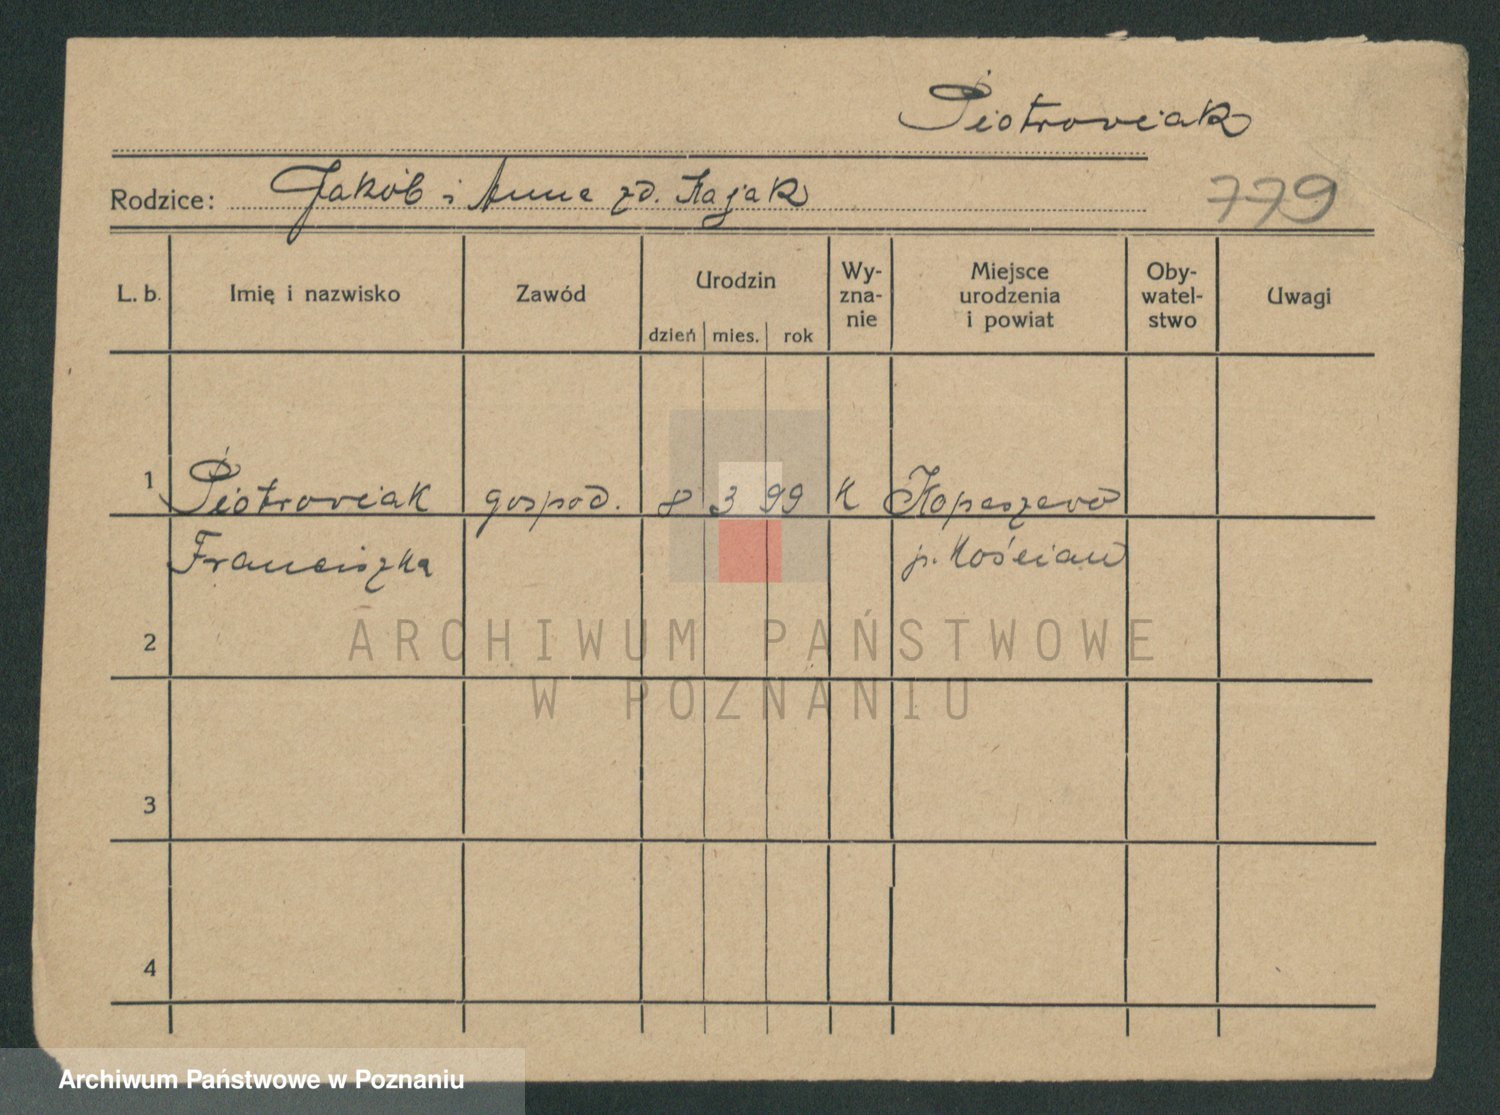 Piotrowiak
Rodzice: Jakób i Anna zd. Kajak
779
L. b. Imię i nazwisko Zawód Urodzin Wy-zna-nie Miejsce urodzenia i powiat Oby-watel-stwo Uwagi
dzień mies. rok
1 Piotrowiak gospod. 8 3 99 K Kopaszewo
Franciszka p. Kościan
2
ARCHIWUM PAŃSTWOWE
W POZNANIU
3
4
Archiwum Państwowe w Poznaniu